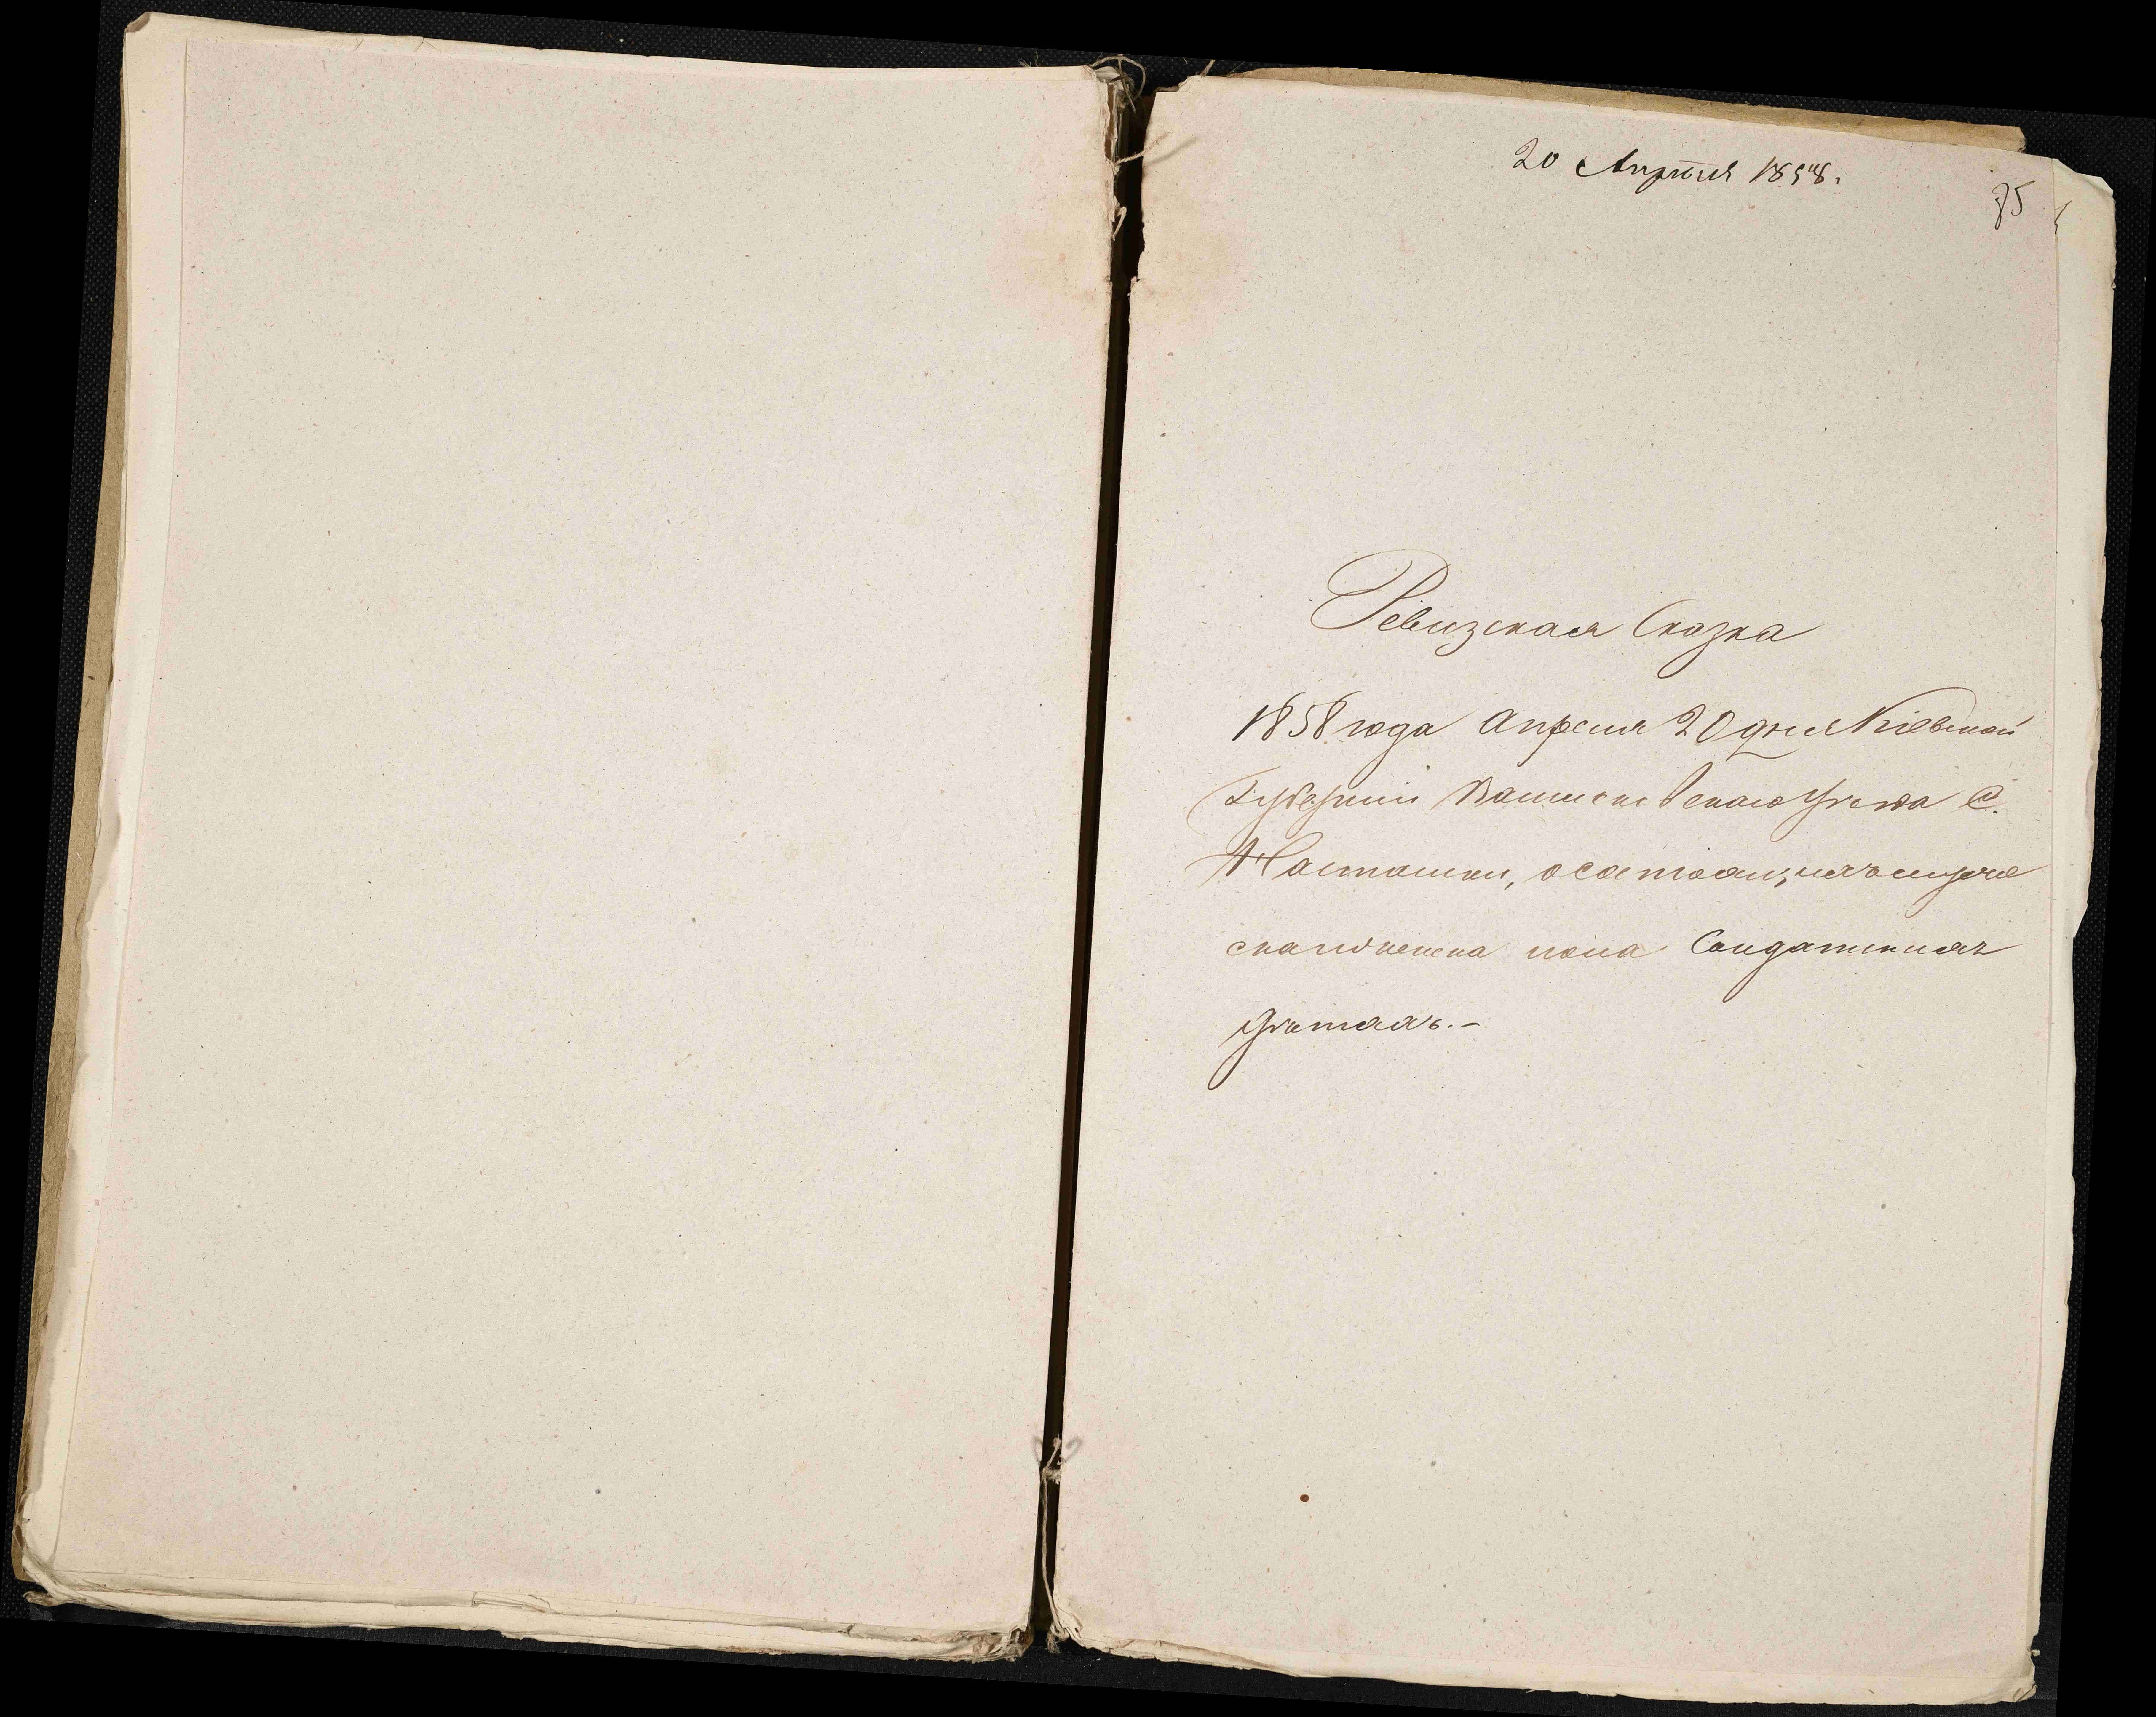 20 Апрѣля 1858.
75
Ревизская Сказка
1858 года Апреля 20 дня Кіевской
Губерніи Васильковскаго уезда С.
Насташки, о состоящихъ
женска пола Солдатскихъ
детяхъ.-